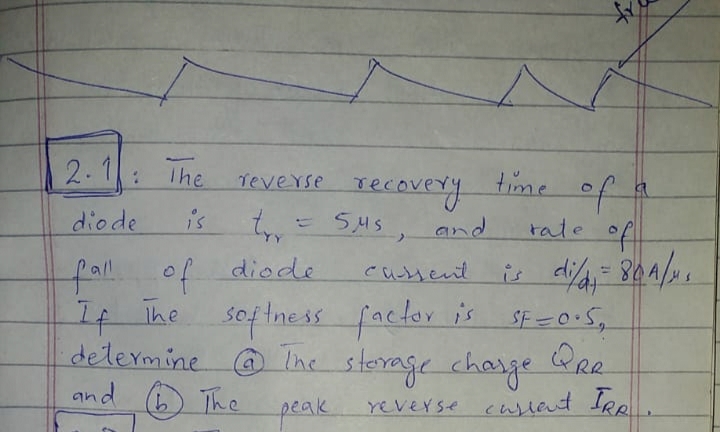 2.1 : The reverse recovery time of a
diode is trr = 5μs, and rate of
fall of diode current is di/dt = 80A/μs
If The softness factor is SF=0.5,
determine ⓐ The storage charge QRR
and ⓑ The peak reverse current IRR.